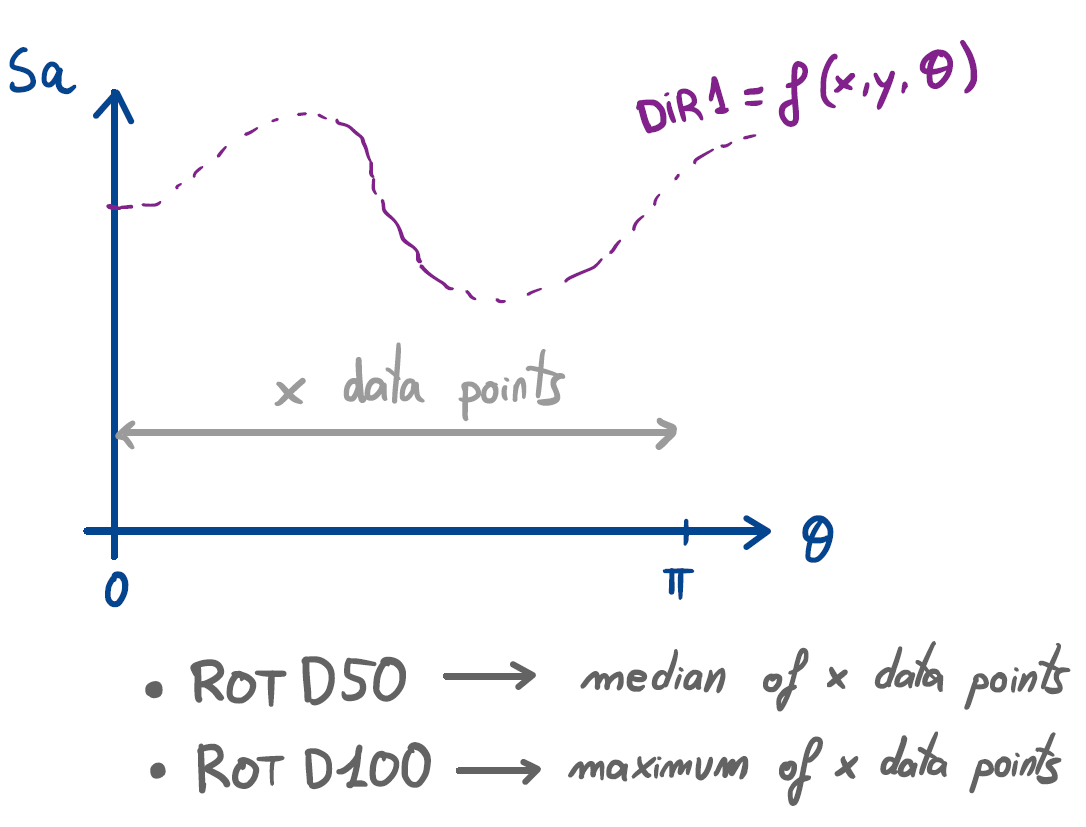 Sa
DiR1 = f(x,y,θ)
x data points
θ
0
π
• ROT D50 → median of x data points
• ROT D100 → maximum of x data points